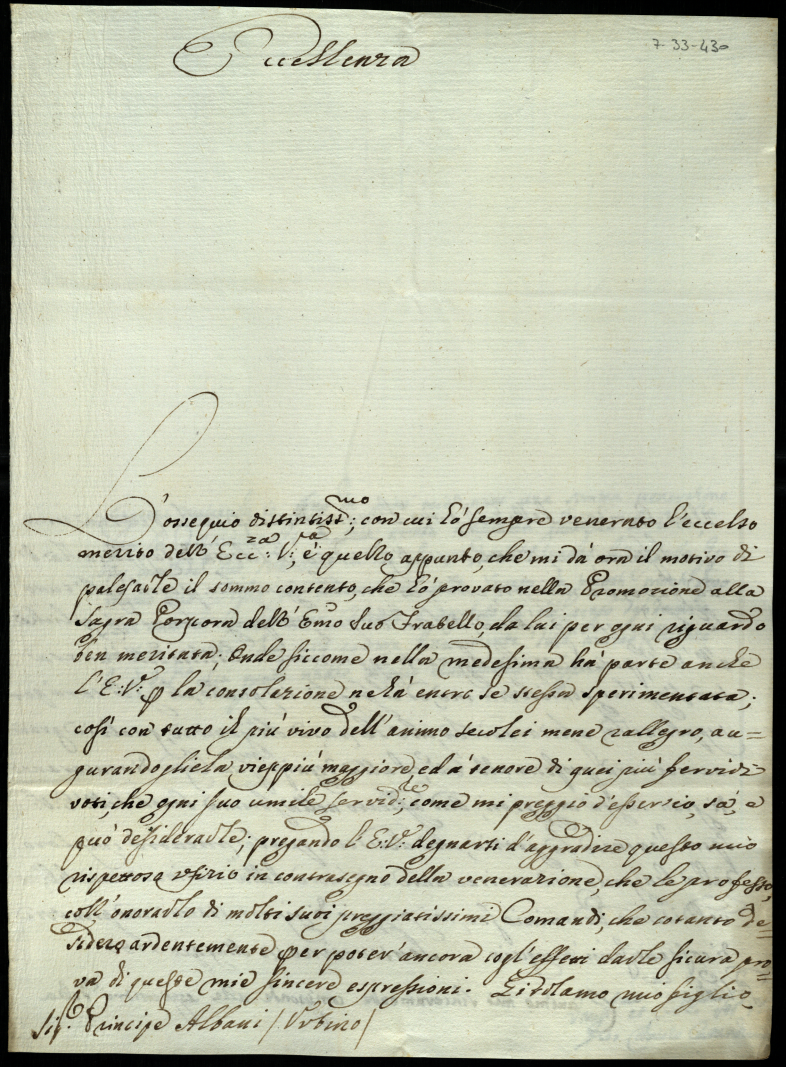 7-33-430
Eccellenza
L'ossequio distintiss.mo; con cui hò sempre venerato l'eccelso
merito dell' Ecc:za V:a; è quello appunto, che mi dà ora il motivo di
palesarle il sommo contento, che hò provato nella Promozione alla
Sagra Porpora dell' Emo Suo Fratello, da lui per ogni riguardo
ben meritata; Onde siccome nella medesima hà parte anche
l'E:V: p la consolazione ne hà entro se stessa sperimentata;
così con tutto il più vivo dell'animo seco lei mene rallegro, au=
gurandogliela vieppiù maggiore, ed à tenore di quei più fervidi
voti, che ogni suo umile servid:re, come mi preggio d'esserlo, sà, e
può desiderarle; pregando l'E:V: degnarsi d'aggradire questo mio
rispettoso ufizio in contrasegno della venerazione, che le professo,
coll'onorarlo di molti suoi preggiatissimi Comandi, che cotanto de=
sidero ardentemente per poter'ancora cogl'effetti darle sicura pro=
va di queste mie sincere espressioni. Girolamo mio figlio
Sig.r Principe Albani /Urbino/